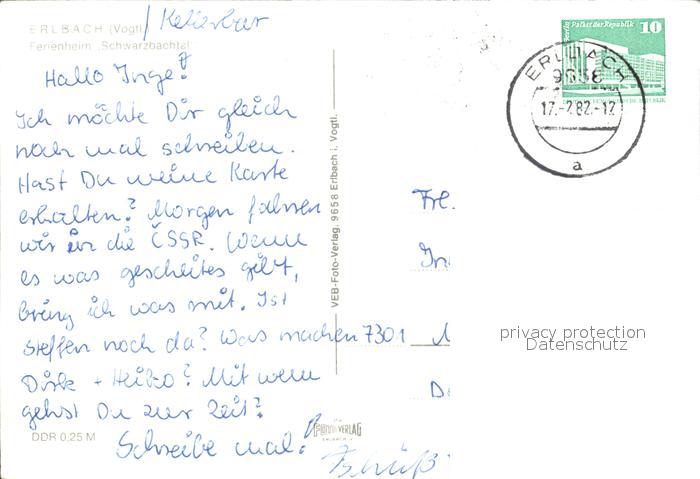 ERLBACH (Vogtl)
/ Kellerbar
Ferienheim „Schwarzbachtal"
Hallo Inge!
Ich möchte Dir gleich
noch mal schreiben.
Hast Du meine Karte
erhalten? Morgen fahren
wir in die ČSSR. Wenn
es was gescheites gibt,
bring ich was mit. Ist
Steffen noch da? Was machen
Dirk + Heiko? Mit wem
gehst Du zur Zeit?
Schreibe mal.
Tschüß
DDR 0,25 M
VEB-Foto-Verlag, 9658 Erlbach i. Vogtl.
FOTO-VERLAG
Berlin Palast der Republik 10
ERLBACH
9658
17.-2.82.-12
a
Frl.
In
7301
D
privacy protection
Datenschutz